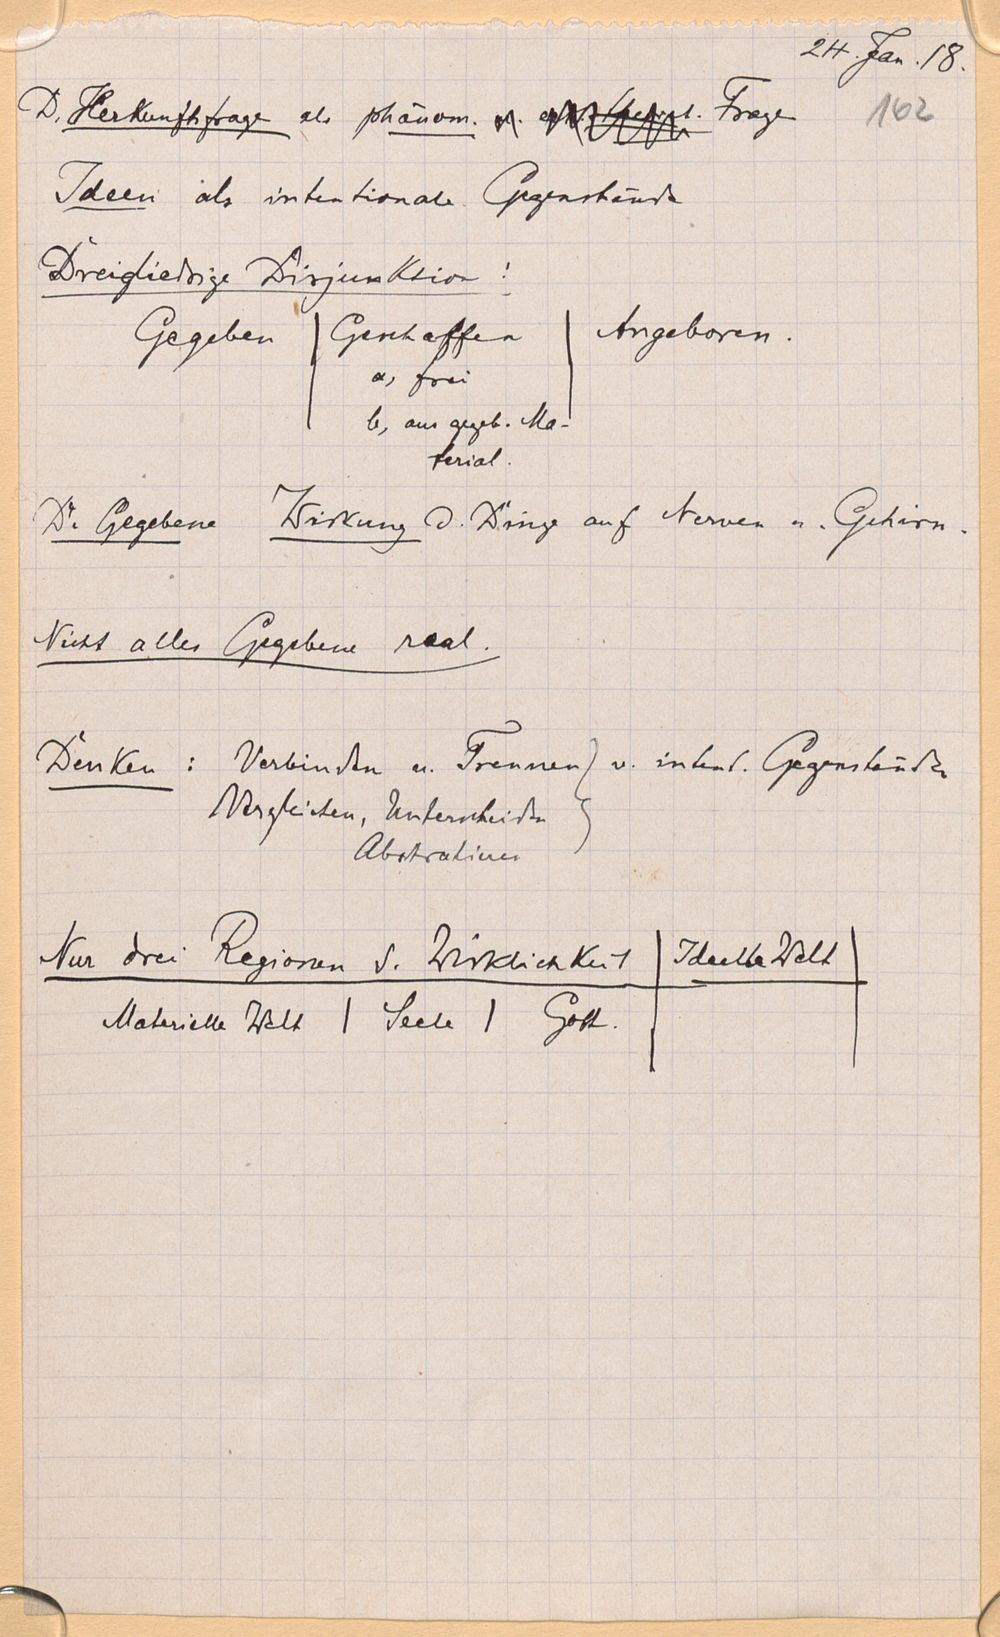 24. Jan. 18.
162
D. Herkunftsfrage als phänom. u. Frage
Ideen als intentionale Gegenstände
Dreigliedrige Disjunktion!
Gegeben | Geschaffen | Angeboren.
a, frei
b, aus gegeb. Ma-
terial.
D. Gegebene Wirkung d. Dinge auf Nerven u. Gehirn.
Nicht alles Gegebene real.
Denken: Verbinden u. Trennen } v. intent. Gegenständen
Vergleichen, Unterscheiden }
Nur drei Regionen d. Wirklichkeit | Ideelle Welt |
Materielle Welt | Seele | Gott.